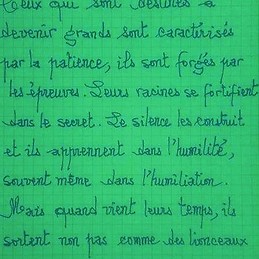 Ceux qui sont destinés à
devenir grands sont caractérisés
par la patience, ils sont forgés par
les épreuves. Leurs racines se fortifient
dans le secret. Le silence les construit
et ils apprennent dans l'humilité,
souvent même dans l'humiliation.
Mais quand vient leurs temps, ils
sortent non pas comme des lionceaux